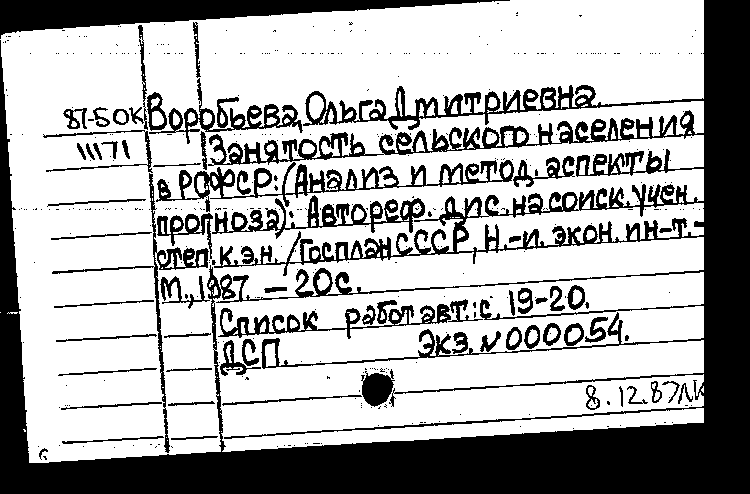 87-5 ОК Воробьева, Ольга Дмитриевна.
11171 Занятость сельского населения
в РСФСР: (Анализ и метод. аспекты
прогноза): Автореф. дис. на соиск. учен.
степ. к.э.н. /Госплан СССР, Н.-и. экон. ин-т.-
М., 1987. – 20 с.
Список работ авт.: с. 19-20.
ДСП. Экз. № 000054.
8.12.87